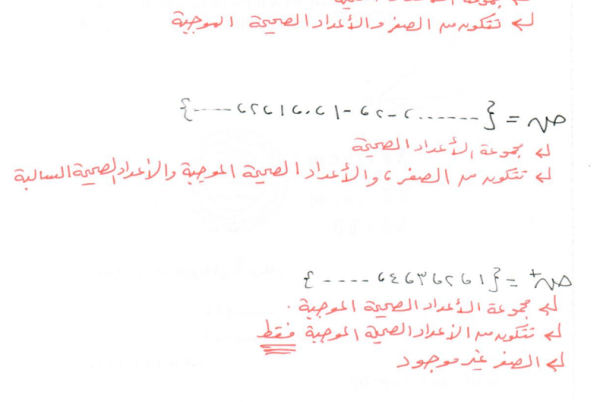 مجموعة الأعداد
↲ تتكون من الصفر والأعداد الصحيحة الموجبة
ص = {...... -٢، -١، ٠، ١، ٢، ......}
↲ مجموعة الأعداد الصحيحة
↲ تتكون من الصفر، والأعداد الصحيحة الموجبة والأعداد الصحيحة السالبة
ص+ = {١، ٢، ٣، ٤، ......}
↲ مجموعة الأعداد الصحيحة الموجبة.
↲ تتكون من الأعداد الصحيحة الموجبة فقط
↲ الصفر غير موجود